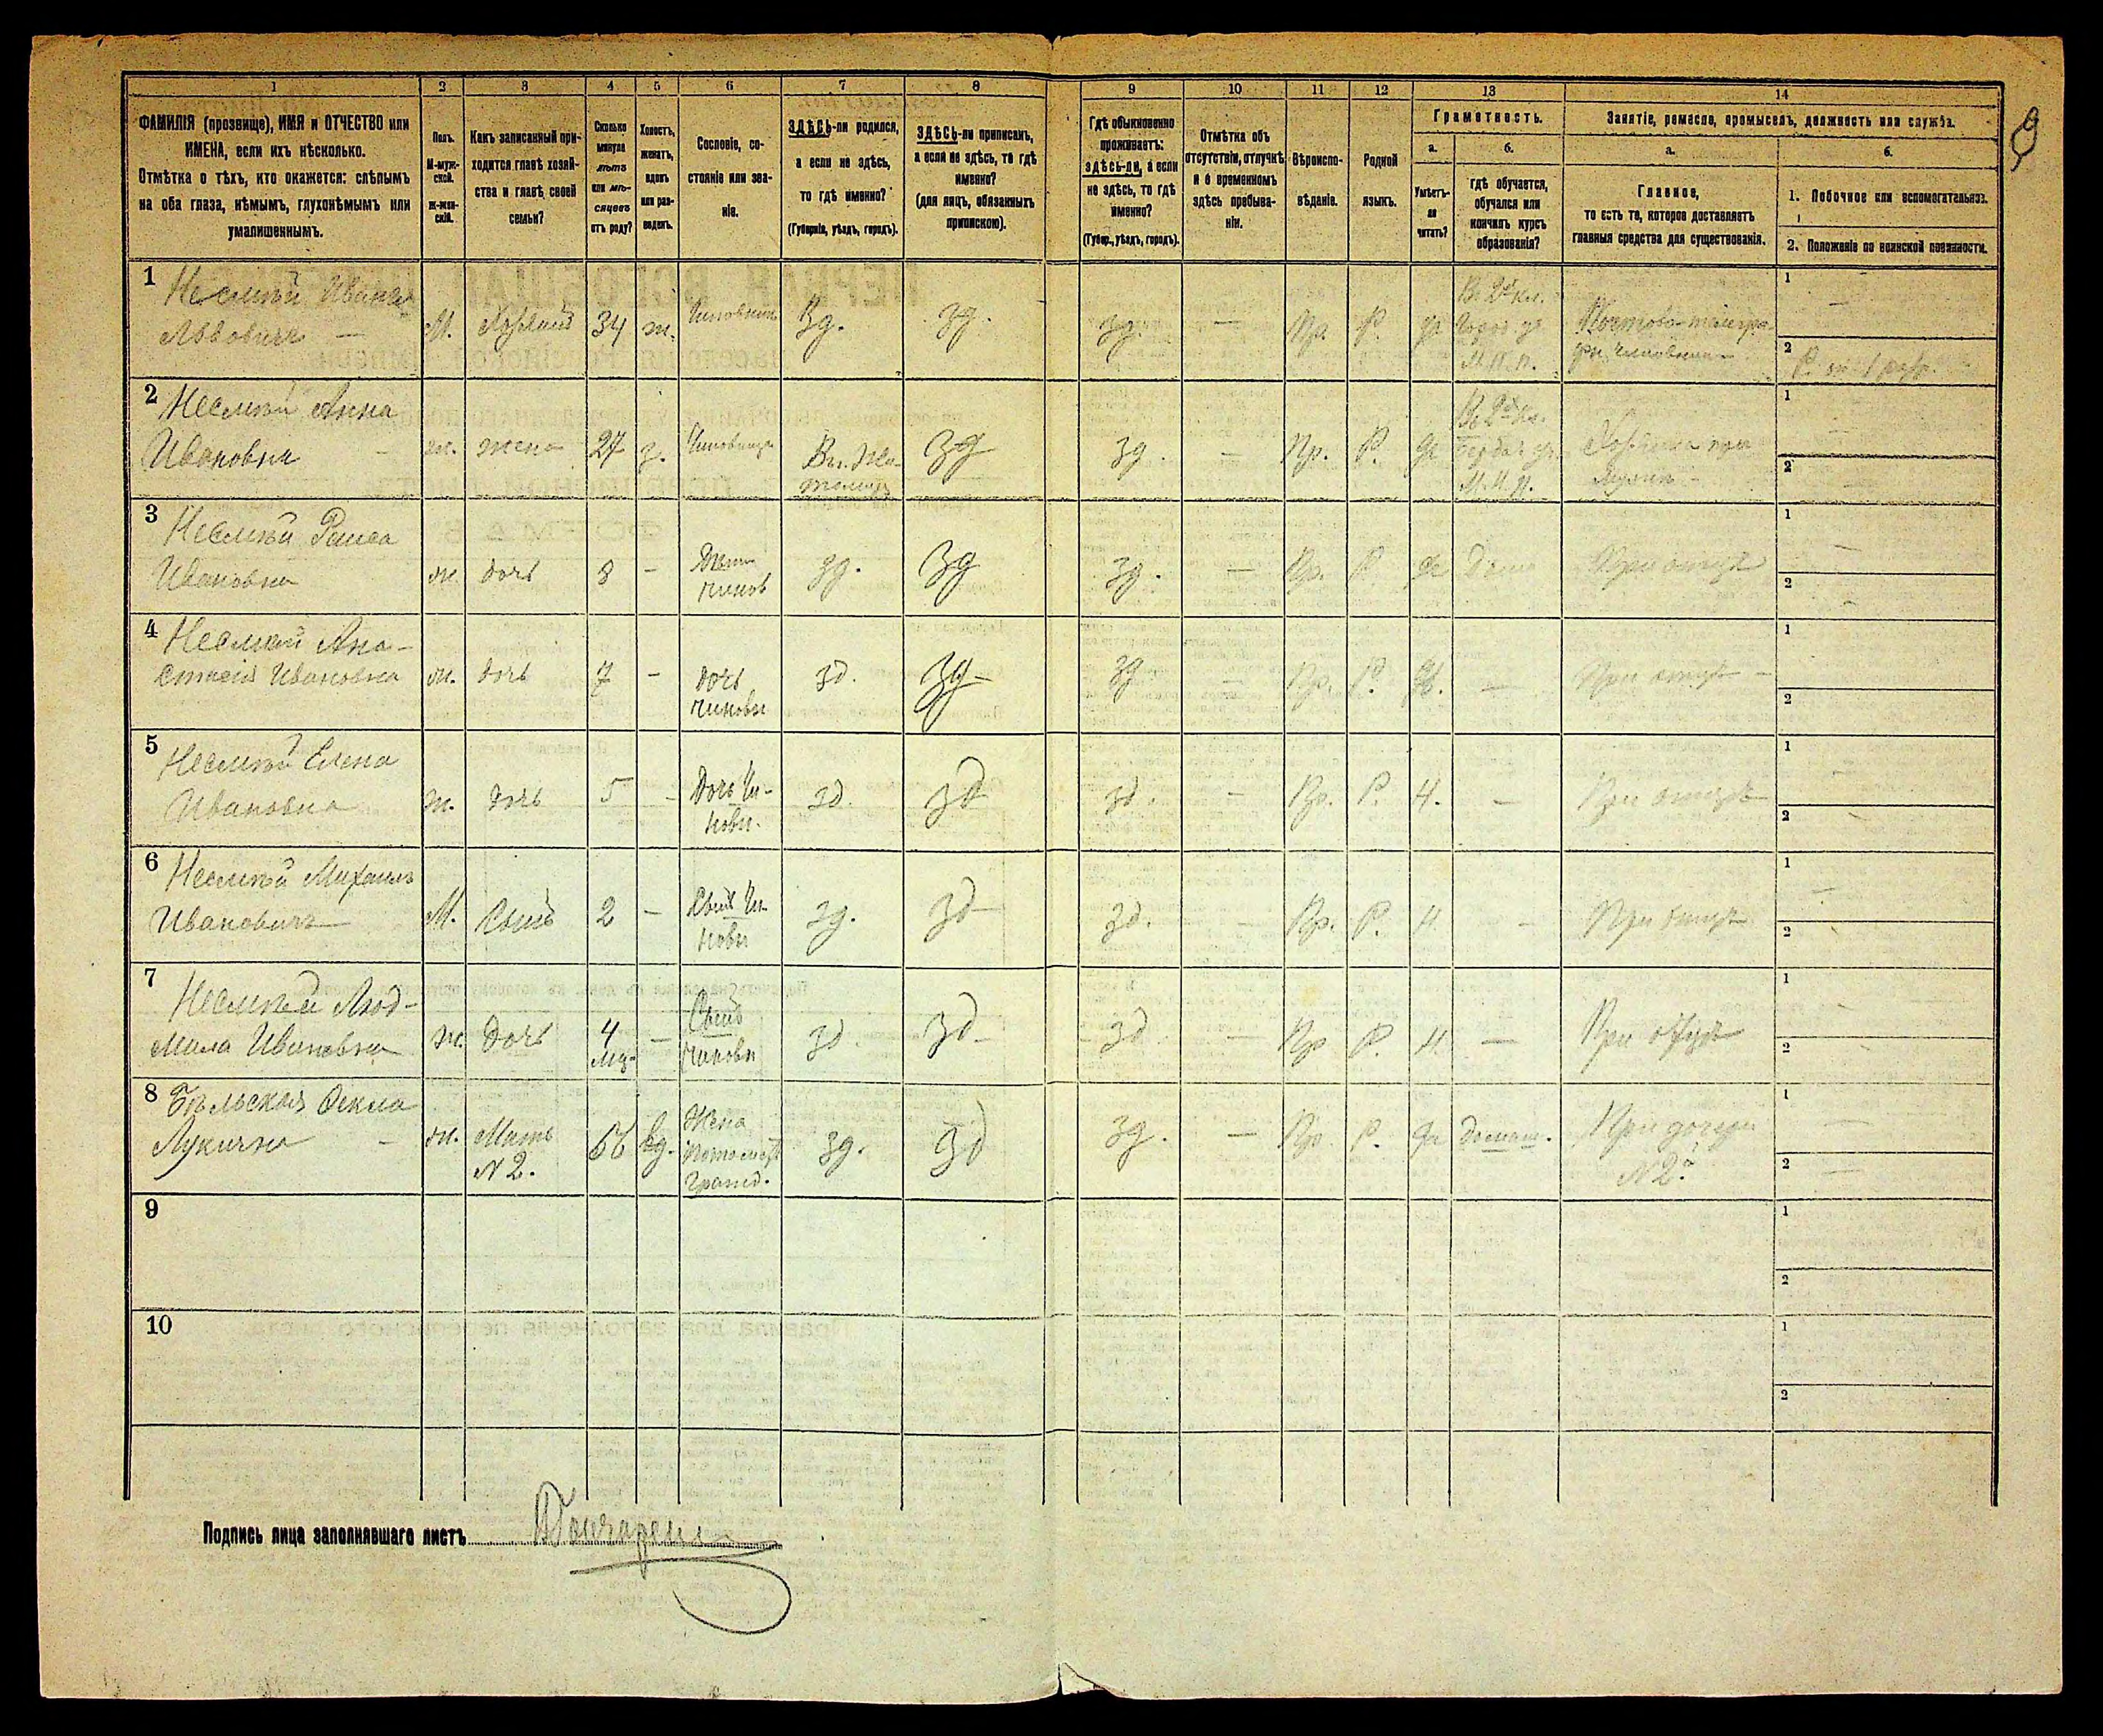 1 2 3 4 5 6 7 8 9 10 11 12 13 14
ФАМИЛІЯ (прозвище), ИМЯ и ОТЧЕСТВО или
ИМЕНА, если ихъ нѣсколько.
Отмѣтка о тѣхъ, кто окажется: слѣпымъ
на оба глаза, нѣмымъ, глухонѣмымъ или
умалишеннымъ.
Полъ.
М-муж-
ской.
Ж-жен-
скій.
Какъ записанный при-
ходится главѣ хозяй-
ства и главѣ своей
семьи?
Сколько
минуло
лѣтъ
или мѣ-
сяцевъ
отъ роду?
Холостъ,
женатъ,
вдовъ
или раз-
веденъ.
Сословіе, со-
стояніе или зва-
ніе.
ЗДѢСЬ-ли родился,
а если не здѣсь,
то гдѣ именно?
(Губернія, уѣздъ, городъ).
ЗДѢСЬ-ли приписанъ,
а если не здѣсь, то гдѣ
именно?
(для лицъ, обязанныхъ
припискою).
Гдѣ обыкновенно
проживаетъ:
здѣсь-ли, а если
не здѣсь, то гдѣ
именно?
(Губер., уѣздъ, городъ).
Отмѣтка объ
отсутствіи, отлучкѣ
и о временномъ
здѣсь пребыва-
ніи.
Вѣроиспо-
вѣданіе.
Родной
языкъ.
Грамотность.
а.
Умѣетъ-
ли
читать?
б.
гдѣ обучается,
обучался или
кончилъ курсъ
образованія?
Занятіе, ремесло, промыселъ, должность или служба.
а.
Главное,
то есть то, которое доставляетъ
главныя средства для существованія.
б.
1. Побочное или вспомогательное.
2. Положеніе по воинской повинности.
9
1 Несмѣй Иванъ
Львовичъ — М. Хозяинъ 34 ж. Чиновникъ Зд. Зд. Зд. — Пр. Р. да
В 2х кл.
Город. уч.
М.Н.П.
Почтово-телегра-
фн. чиновникъ
1 —
2
2 Несмѣй Анна
Ивановна — ж. жена 27 з. Зд Зд. — Пр. Р. да
В 2х кл.
М.Н.П.
Хозяйка при
мужѣ —
1 —
2 —
3 Несмѣй Раиса
Ивановна ж. дочь 8 — зд. Зд Зд. — Пр. Р. да Дома При отцѣ
1 —
2 —
4 Несмѣй Ана-
стасія Ивановна ж. дочь 7 — дочь
чиновн зд. Зд — Зд — Пр. Р. — При отцѣ —
1
2
5 Несмѣй Елена
Ивановна ж. дочь 5 — Дочь Чи-
новн. зд. зд зд. — Пр. Р. Н. — При отцѣ
1 —
2 —
6 Несмѣй Михаилъ
Ивановичъ М. Сынъ 2 — Сынъ Чи-
новн зд. зд зд. — Пр. Р. Н. — При отцѣ
1 —
2 —
7 Несмѣй Люд-
мила Ивановна ж. дочь 4
мѣ. — Сынъ
чиновн зд. зд зд — Пр Р. Н — При отцѣ
1 —
2 —
8 Бѣльская Ѳекла
Лукична — ж. Мать
№ 2. вд. Жена
Потомст
гражд. зд. зд зд. — Пр. Р. да домаш. При дочери
№ 2й
1 —
2 —
9
1
2
10
1
2
Подпись лица заполнявшаго листъ